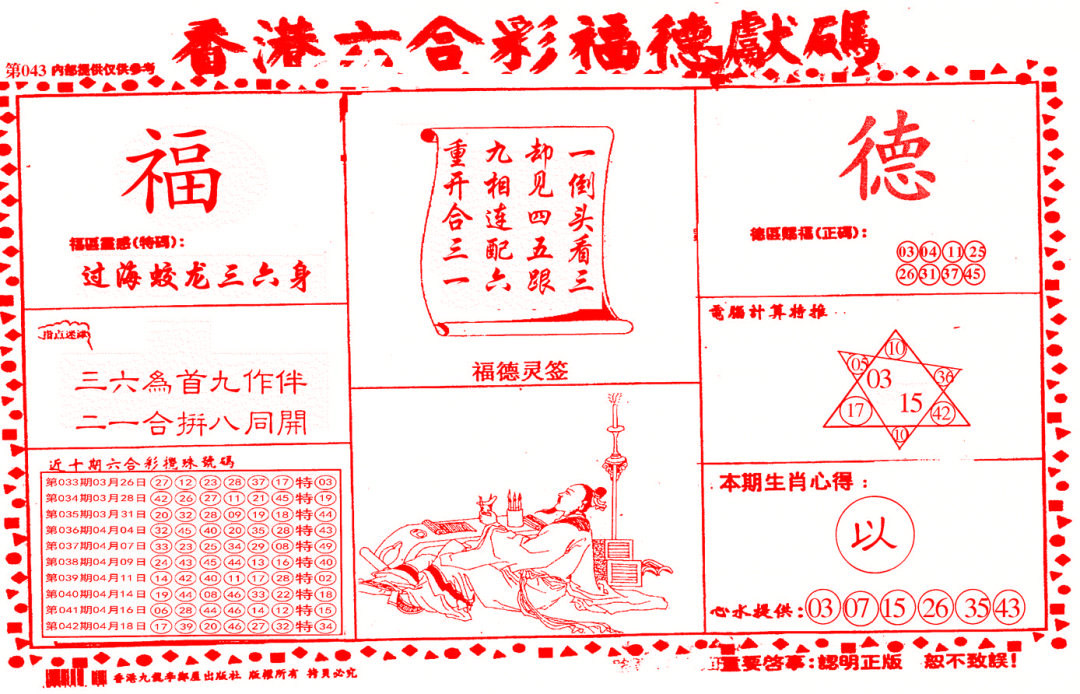 香港六合彩福德獻碼
第043 内部提供仅供参考
福
福區靈感(特碼):
过海蛟龙三六身
指点迷津
三六為首九作伴
二一合拼八同開
近十期六合彩攪珠號碼
第033期03月26日 27 12 23 28 37 17 特 03
第034期03月28日 42 26 27 11 21 45 特 19
第035期03月31日 20 32 28 09 19 18 特 44
第036期04月04日 32 45 40 20 35 28 特 43
第037期04月07日 33 23 25 34 29 08 特 49
第038期04月09日 24 43 45 44 13 16 特 40
第039期04月11日 14 42 40 11 17 28 特 02
第040期04月14日 19 44 08 46 33 22 特 18
第041期04月16日 06 28 44 46 14 12 特 15
第042期04月18日 17 39 20 46 27 32 特 34
一倒头看三
却见四五跟
九相连配六
重开合三一
福德灵签
德
德區賜福(正碼):
03 04 11 25
26 31 37 45
電腦計算特推
10
05 03 36
17 15 42
10
本期生肖心得:
以
心水提供: 03 07 15 26 35 43
香港九龍李鄭屋出版社 版權所有 拷貝必究
重要啓事:認明正版 恕不致誤!